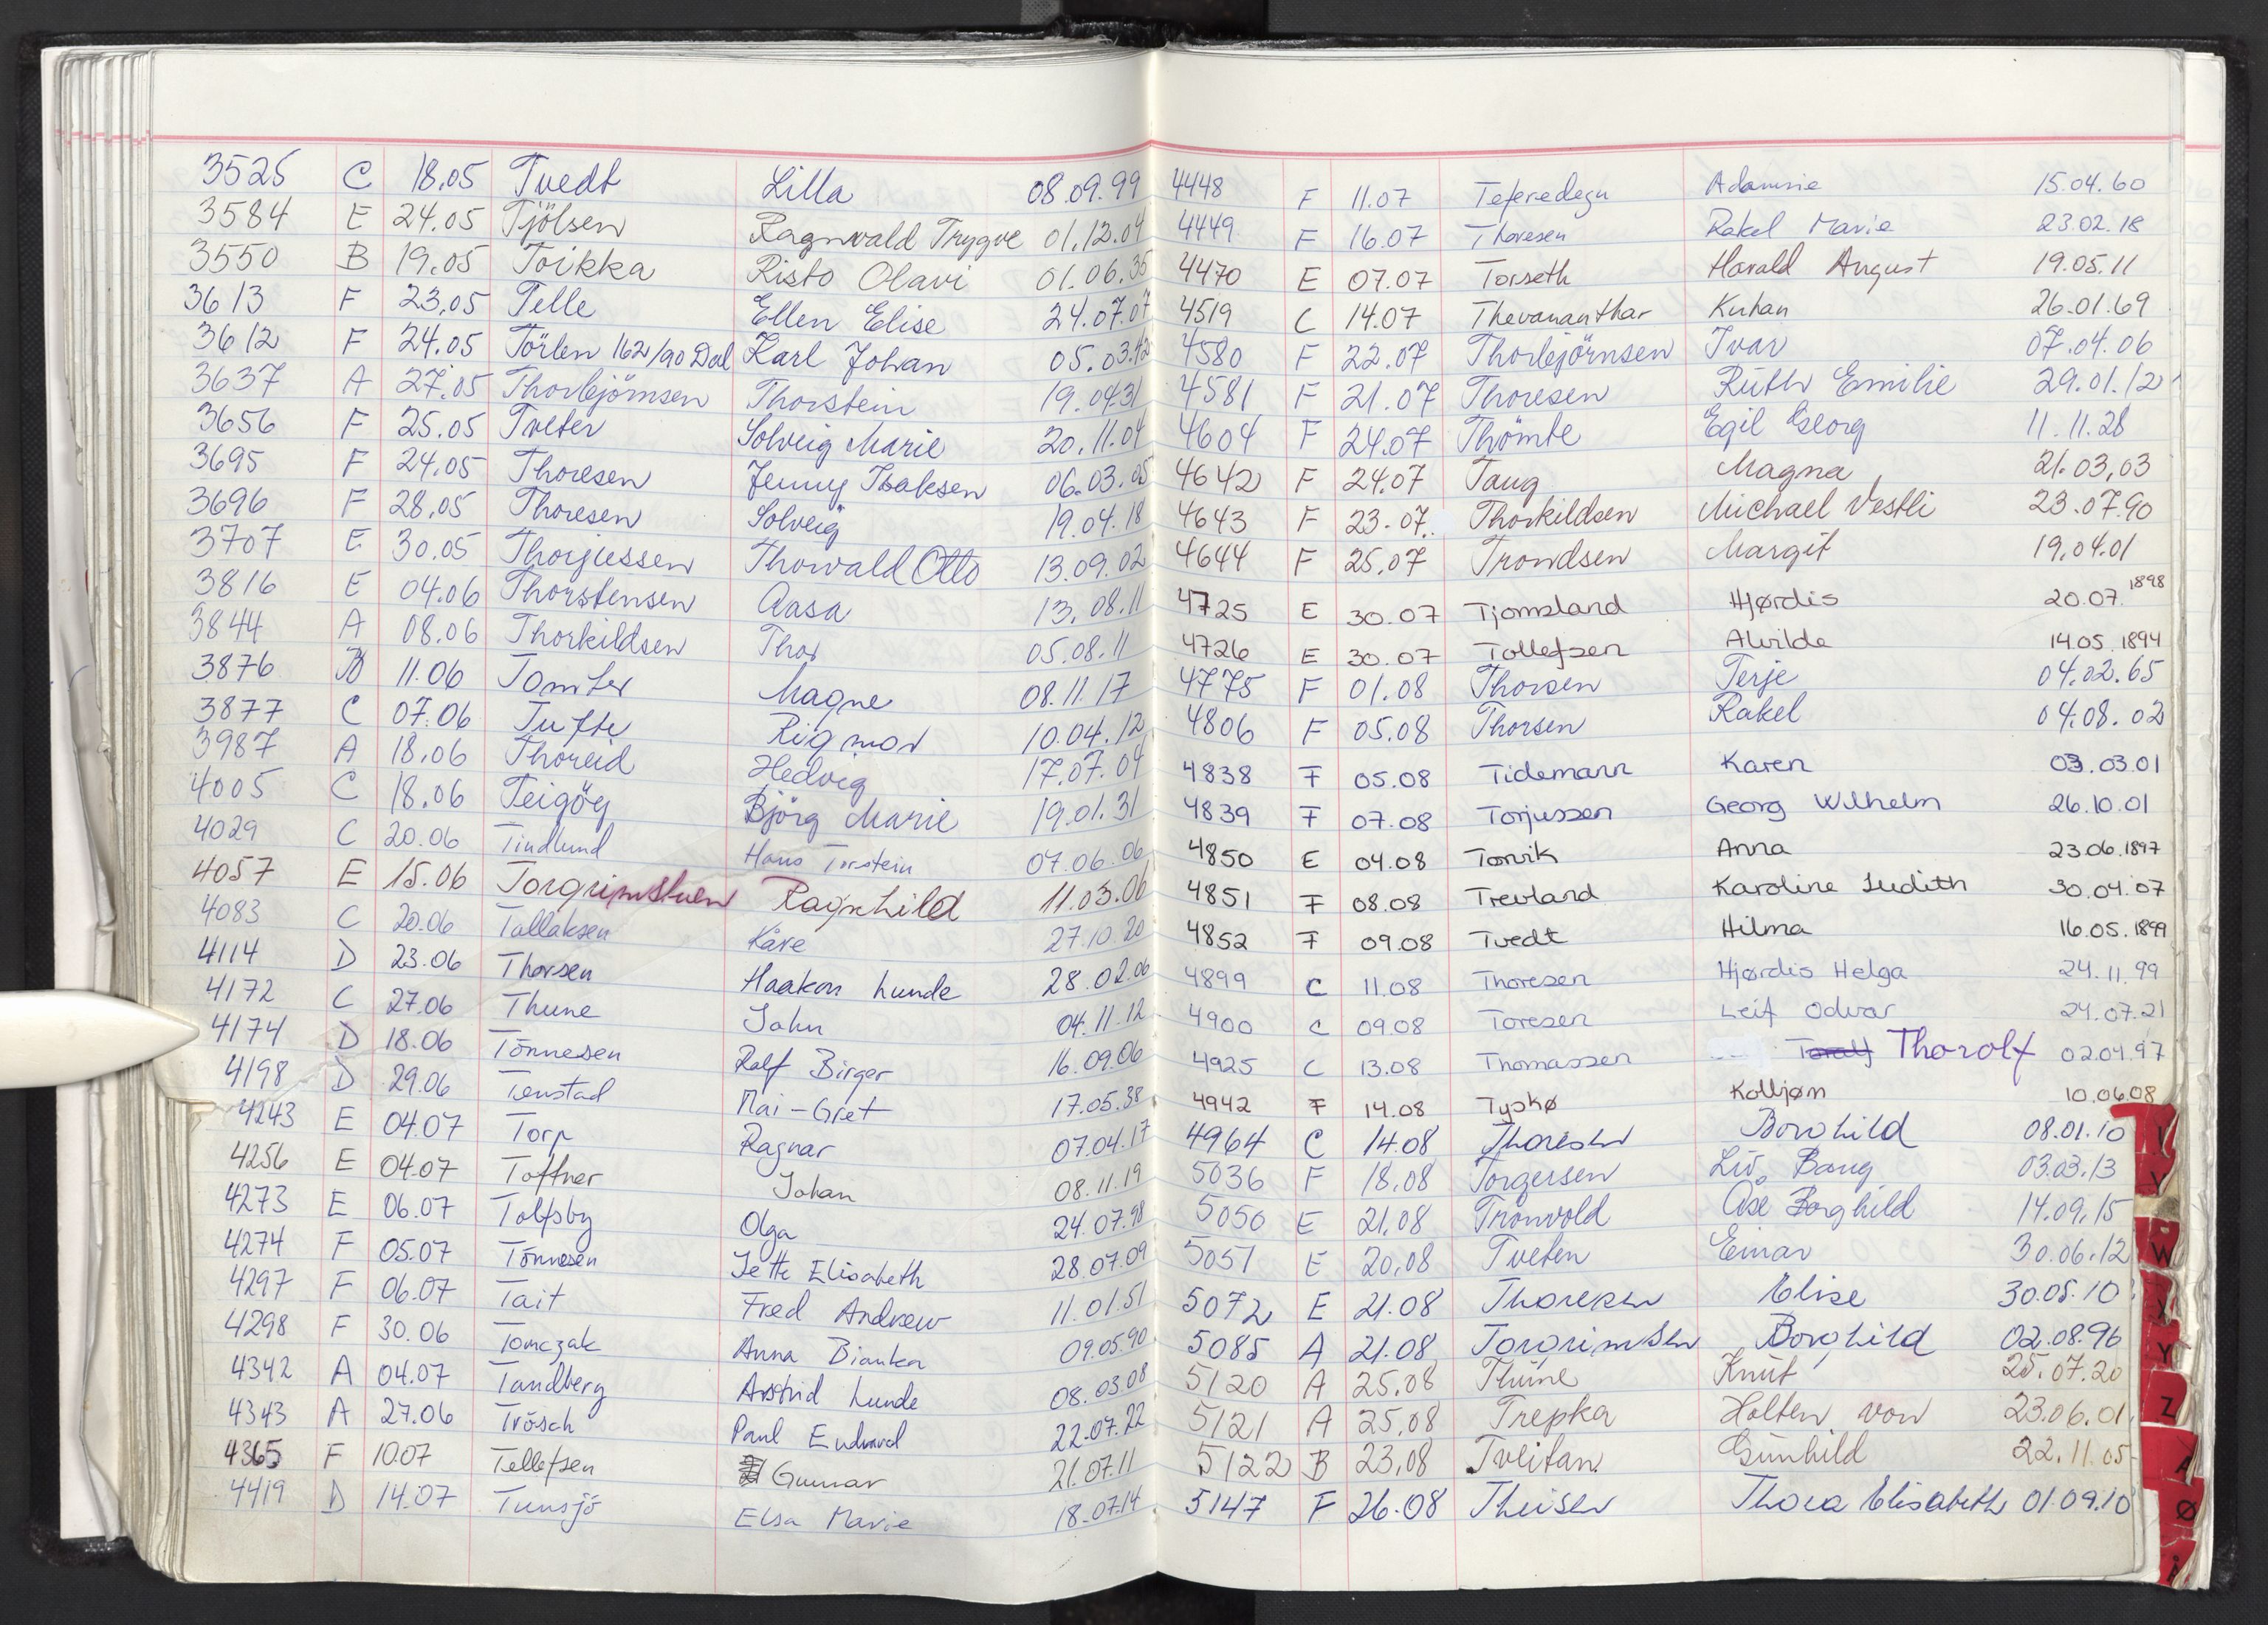 3525 C 18.05 Tvedt Lilla 08.09.99
3584 E 24.05 Tjölsen Ragnvald Trygve 01.12.04
3550 B 19.05 Toikka Risto Olavi 01.06.35
3613 F 23.05 Telle Ellen Elise 24.07.07
3612 F 24.05 Törlen 162/90 Dal Karl Johan 05.03.42
3637 A 27.05 Thorbjörnsen Thorstein 19.04.31
3656 F 25.05 Tveter Solveig Marie 20.11.04
3695 F 24.05 Thoresen Jenny Isaksen 06.03.05
3696 F 28.05 Thoresen Solveig 19.04.18
3707 E 30.05 Thorjussen Thorvald Otto 13.09.02
3816 E 04.06 Thorstensen Aasa 13.08.11
3844 A 08.06 Thorkildsen Thor 05.08.11
3876 B 11.06 Tomter Magne 08.11.17
3877 C 07.06 Tufte Rigmor 10.04.12
3987 A 18.06 Thoreid Hedvig 17.07.04
4005 C 18.06 Teigöy Björg Marie 19.01.31
4029 C 20.06 Tindlund Hans Torstein 07.06.06
4057 E 15.06 Torgrimstuen Ragnhild 11.03.06
4083 C 20.06 Tallaksen Kåre 27.10.20
4114 D 23.06 Thorsen Haakon Lunde 28.02.06
4172 C 27.06 Thune John 04.11.12
4174 D 18.06 Tönnesen Rolf Birger 16.09.06
4198 D 29.06 Tenstad Mai-Gret 17.05.38
4243 E 04.07 Torp Ragnar 07.04.17
4256 E 04.07 Toffner Johan 08.11.19
4273 E 06.07 Tolfsby Olga 24.07.98
4274 F 05.07 Tönnesen Jette Elisabeth 28.07.09
4297 F 06.07 Tait Fred Andrew 11.01.51
4298 F 30.06 Tomczak Anna Bianka 09.05.90
4342 A 04.07 Tandberg Astrid Lunde 08.03.08
4343 A 27.06 Trösch Paul Eduard 22.07.22
4365 F 10.07 Tellefsen Gunnar 21.07.11
4419 D 14.07 Tunsjö Elsa Marie 18.07.14
4448 F 11.07 Teferedegn 15.04.60
4449 F 16.07 Thoresen Rakel Marie 23.02.18
4470 E 07.07 Torseth Harald August 19.05.11
4519 C 14.07 Thevananthar Kuhan 26.01.69
4580 F 22.07 Thorbjörnsen Ivar 07.04.06
4581 F 21.07 Thoresen Ruth Emilie 29.01.12
4604 F 24.07 Thömte Egil Georg 11.11.28
4642 F 24.07 Taug Magna 21.03.03
4643 F 23.07. Thorkildsen Michael Vestli 23.07.90
4644 F 25.07 Trondsen Margit 19.04.01
4725 E 30.07 Tjomsland Hjørdis 20.07.1898
4726 E 30.07 Tollefsen Alvilde 14.05.1894
4775 F 01.08 Thorsen Terje 04.02.65
4806 F 05.08 Thorsen Rakel 04.08.02
4838 F 05.08 Tidemann Karen 03.03.01
4839 F 07.08 Torjussen Georg Wilhelm 26.10.01
4850 E 04.08 Torvik Anna 23.06.1897
4851 F 08.08 Trevland Karoline Judith 30.04.07
4852 F 09.08 Tvedt Hilma 16.05.1899
4899 C 11.08 Thoresen Hjørdis Helga 24.11.99
4900 C 09.08 Toresen Leif Odvar 24.07.21
4925 C 13.08 Thomassen Toralf Thorolf 02.04.97
4942 F 14.08 Tyskø Kolbjørn 10.06.08
4964 C 14.08 Thoresen Borghild 08.01.10
5036 F 18.08 Torgersen Liv Bang 03.03.13
5050 E 21.08 Trönvold Åse Borghild 14.09.15
5051 E 20.08 Tveten Einar 30.06.12
5072 E 21.08 Thoresen Elise 30.05.10
5085 A 21.08 Torgrimsen Borghild 02.08.96
5120 A 25.08 Thune Knut 25.07.20
5121 A 25.08 Trepka Holten von 23.06.01
5122 B 23.08 Tveitan Gunhild 22.11.05
5147 F 26.08 Theisen Thora Elisabeth 01.09.10
V
W
X
Y
Z
Ø
Å